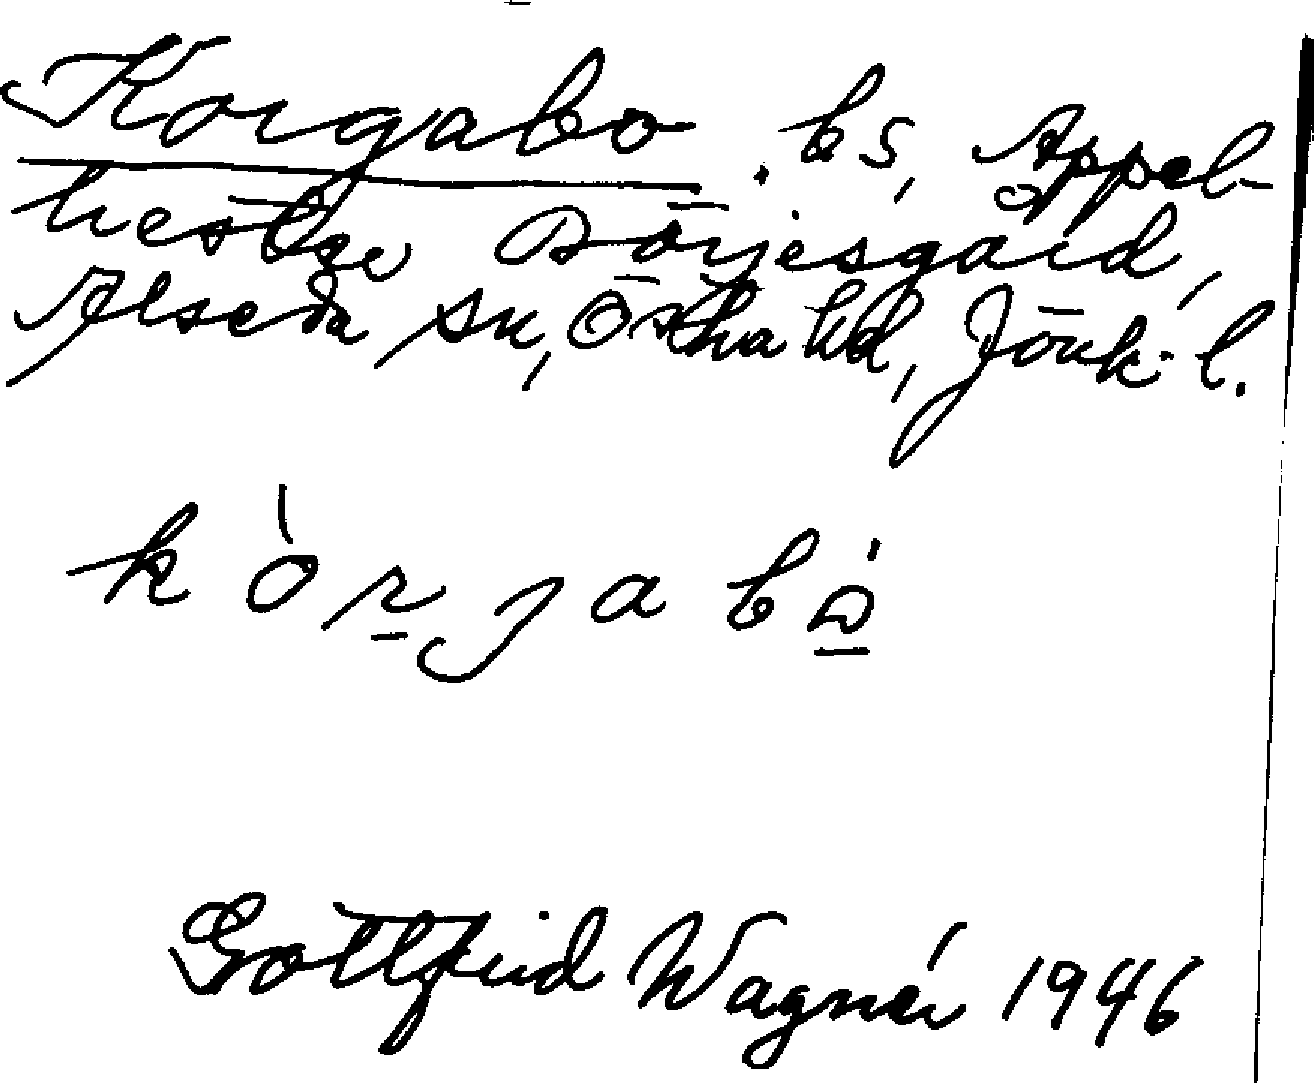 Korgabo. bs, Appel-
hestze Börjesgård,
Alseda sn, Östra hd, Jönk. l.
kòrjabå̇
Gottfrid Wagnér 1946